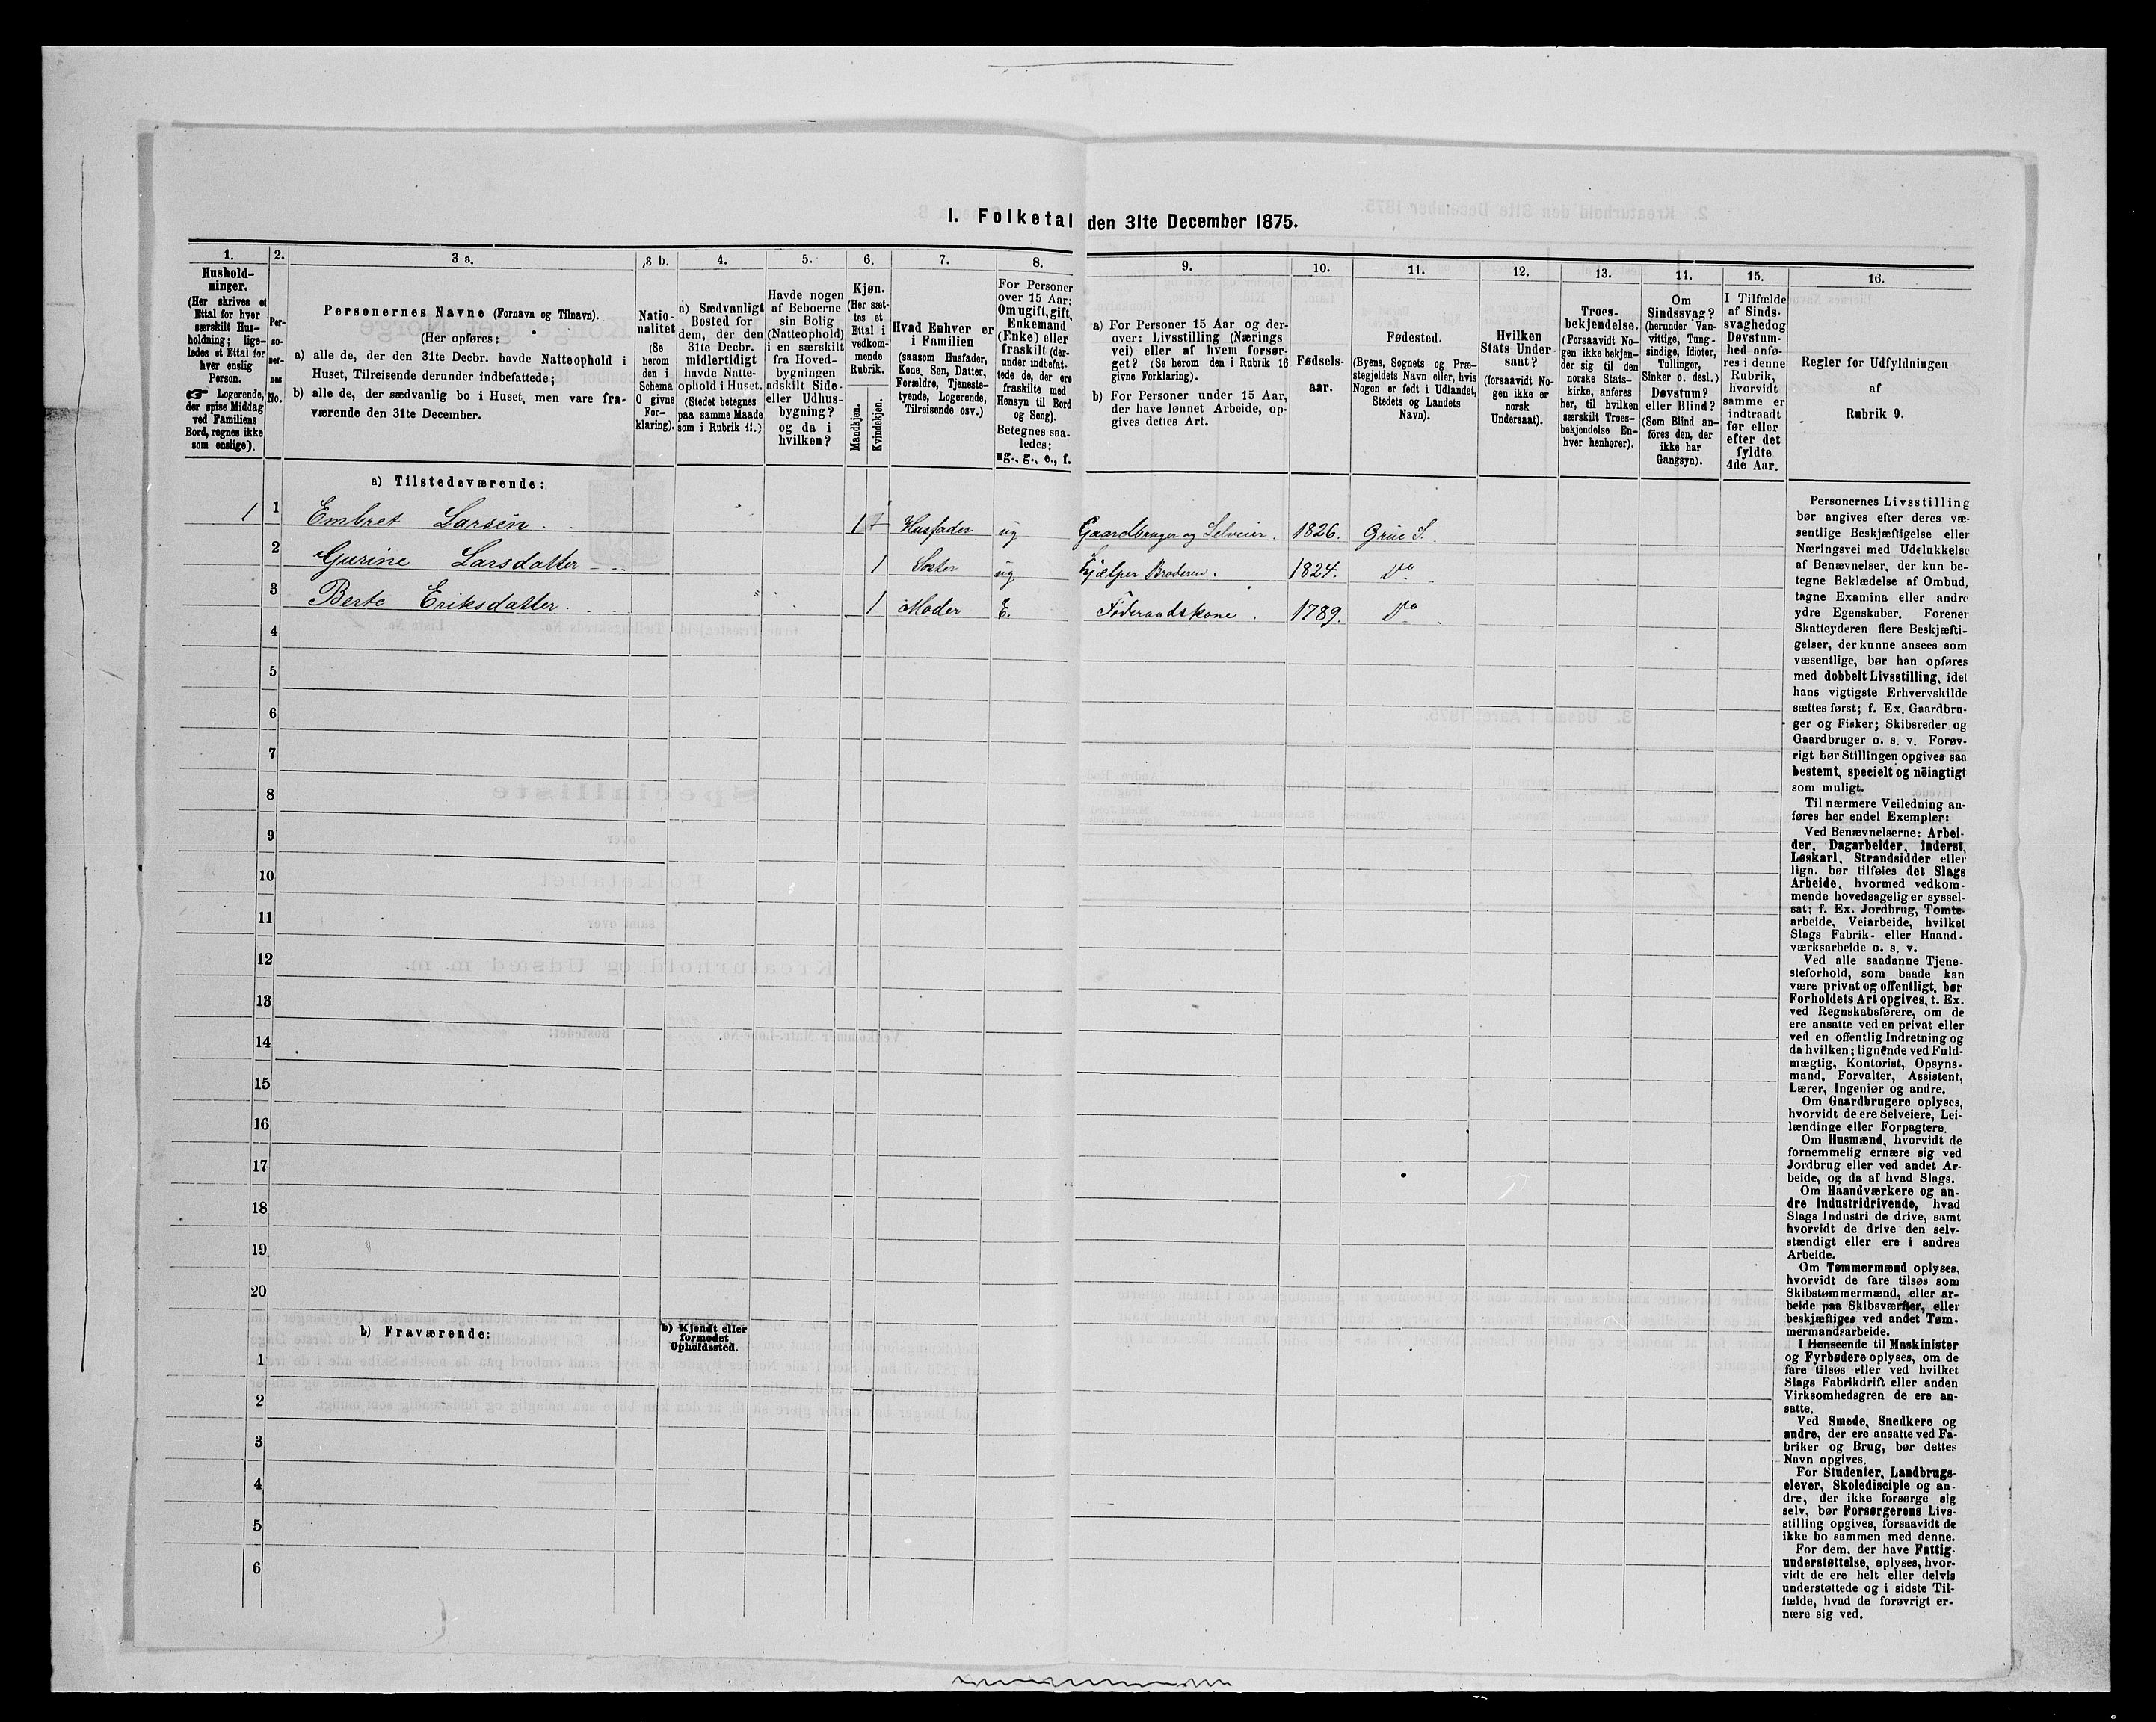 I. Folketal den 31te December 1875.
1.
2.
3 a.
3 b.
4.
5.
6.
7.
8.
9.
10.
11.
12.
13.
14.
15.
16.
Hushold-
ninger.
(Her skrives et
Ettal for hver
særskilt Hus-
holdning; lige-
ledes et Ettal for
hver enslig
Person.
☞ Logerende,
der spise Middag
ved Familiens
Bord, regnes ikke
som enslige).
Per-
so-
ner-
nes
No.
Personernes Navne (Fornavn og Tilnavn).
(Her opføres:
a) alle de, der den 31te Decbr. havde Natteophold i
Huset, Tilreisende derunder indbefattede;
b) alle de, der sædvanlig bo i Huset, men vare fra-
værende den 31te December.
Natio-
nalitet
(Se
herom
den i
Schema
O givne
For-
klaring).
a) Sædvanligt
Bosted for
dem, der den
31te Decbr.
midlertidigt
havde Natte-
ophold i Huset.
(Stedet betegnes
paa samme Maade
som i Rubrik 11.)
Havde nogen
af Beboerne
sin Bolig
(Natteophold)
i en særskilt
fra Hoved-
bygningen
adskilt Side-
eller Udhus-
bygning?
og da i
hvilken?
Kjøn.
(Her sæt-
tes et
Ettal i
vedkom-
mende
Rubrik.
Mandkjøn.
Kvindekjøn.
Hvad Enhver er
i Familien
(saasom Husfader,
Kone, Søn, Datter,
Forældre, Tjeneste-
tyende, Logerende,
Tilreisende osv.)
For Personer
over 15 Aar:
Om ugift, gift,
Enkemand
(Enke) eller
fraskilt (der-
under indbefat-
tede de, der ere
fraskilte med
Hensyn til Bord
og Seng).
Betegnes saa-
ledes:
ug., g., e., f.
a) For Personer 15 Aar og der-
over: Livsstilling (Nærings
vei) eller af hvem forsør-
get? (Se herom den i Rubrik 16
givne Forklaring).
b) For Personer under 15 Aar,
der have lønnet Arbeide, op-
gives dettes Art.
Fødsels-
aar.
Fødested.
(Byens, Sognets og Præ-
stegjeldets Navn eller, hvis
Nogen er født i Udlandet,
Stedets og Landets
Navn).
Hvilken
Stats Under-
saat?
(forsaavidt No-
gen ikke er
norsk
Undersaat).
Troes-
bekjendelse.
(Forsaavidt No-
gen ikke bekjen-
der sig til den
norske Stats-
kirke, anføres
her, til hvilken
særskilt Troes-
bekjendelse En-
hver henhører).
Om
Sindssvag?
(herunder Van-
vittige, Tung-
sindige, Idioter,
Tullinger,
Sinker o. desl.)
Døvstum?
eller Blind?
(Som Blind an-
føres den, der
ikke har
Gangsyn).
I Tilfælde
af Sinds-
svaghed og
Døvstum-
hed anfø-
res i denne
Rubrik,
hvorvidt
samme er
indtraadt
før eller
efter det
fyldte
4de Aar.
Regler for Udfyldningen
af
Rubrik 9.
a) Tilstedeværende:
1 1 Embret Larsen. 1 Husfader ug Gaardbruger og Selveier. 1826. Grue S.
2 Gurine Larsdatter 1 Søster ug Hjelper Broderen. 1824. Do
3 Berte Eriksdatter. 1 Moder E. Føderaadskone. 1789. Do
4
5
6
7
8
9
10
11
12
13
14
15
16
17
18
19
20
b) Fraværende:
b) Kjendt eller
formodet
Opholdssted.
1
2
3
4
5
6
Personernes Livsstilling
bør angives efter deres væ-
sentlige Beskjæftigelse eller
Næringsvei med Udelukkelse
af Benævnelser, der kun be-
tegne Beklædelse af Ombud,
tagne Examina eller andre
ydre Egenskaber. Forener
Skatteyderen flere Beskjæfti-
gelser, der kunne ansees som
væsentlige, bør han opføres
med dobbelt Livsstilling, idet
hans vigtigste Erhvervskilde
sættes først; f. Ex. Gaardbru-
ger og Fisker; Skibsreder og
Gaardbruger o. s. v. Forøv-
rigt bør Stillingen opgives saa
bestemt, specielt og nøiagtigt
som muligt.
Til nærmere Veiledning an-
føres her endel Exempler:
Ved Benævnelserne: Arbei-
der, Dagarbeider, Inderst,
Løskarl, Strandsidder eller
lign. bør tilføies det Slags
Arbeide, hvormed vedkom-
mende hovedsagelig er syssel-
sat; f. Ex. Jordbrug, Tomte-
arbeide, Veiarbeide, hvilket
Slags Fabrik- eller Haand-
værksarbeide o. s. v.
Ved alle saadanne Tjene-
steforhold, som baade kan
være privat og offentligt, bør
Forholdets Art opgives, t. Ex.
ved Regnskabsførere, om de
ere ansatte ved en privat eller
ved en offentlig Indretning og
da hvilken; lignende ved Fuld-
mægtig, Kontorist, Opsyns-
mand, Forvalter, Assistent,
Lærer, Ingeniør og andre.
Om Gaardbrugere oplyses,
hvorvidt de ere Selveiere, Lei-
lændinge eller Forpagtere.
Om Husmænd, hvorvidt de
fornemmelig ernære sig ved
Jordbrug eller ved andet Ar-
beide, og da af hvad Slags.
Om Haandværkere og an-
dre Industridrivende, hvad
Slags Industri de drive, samt
hvorvidt de drive den selv-
stændigt eller ere i andres
Arbeide.
Om Tømmermænd oplyses,
hvorvidt de fare tilsøs som
Skibstømmermænd, eller ar-
beide paa Skibsværfter, eller
beskjæftiges ved andet Tøm-
mermandsarbeide.
I Henseende til Maskinister
og Fyrbødere oplyses, om de
fare tilsøs eller ved hvilket
Slags Fabrikdrift eller anden
Virksomhedsgren de ere an-
satte.
Ved Smede, Snedkere og
andre, der ere ansatte ved Fa-
briker og Brug, bør dettes
Navn opgives.
For Studenter, Landbrugs-
elever, Skoledisciple og an-
dre, der ikke forsørge sig
selv, bør Forsørgerens Livs-
stilling opgives, forsaavidt de
ikke bo sammen med denne.
For dem, der have Fattig-
understøttelse, oplyses, hvor-
vidt de ere helt eller delvis
understøttede og i sidste Til-
fælde, hvad de forøvrigt er-
nære sig ved.